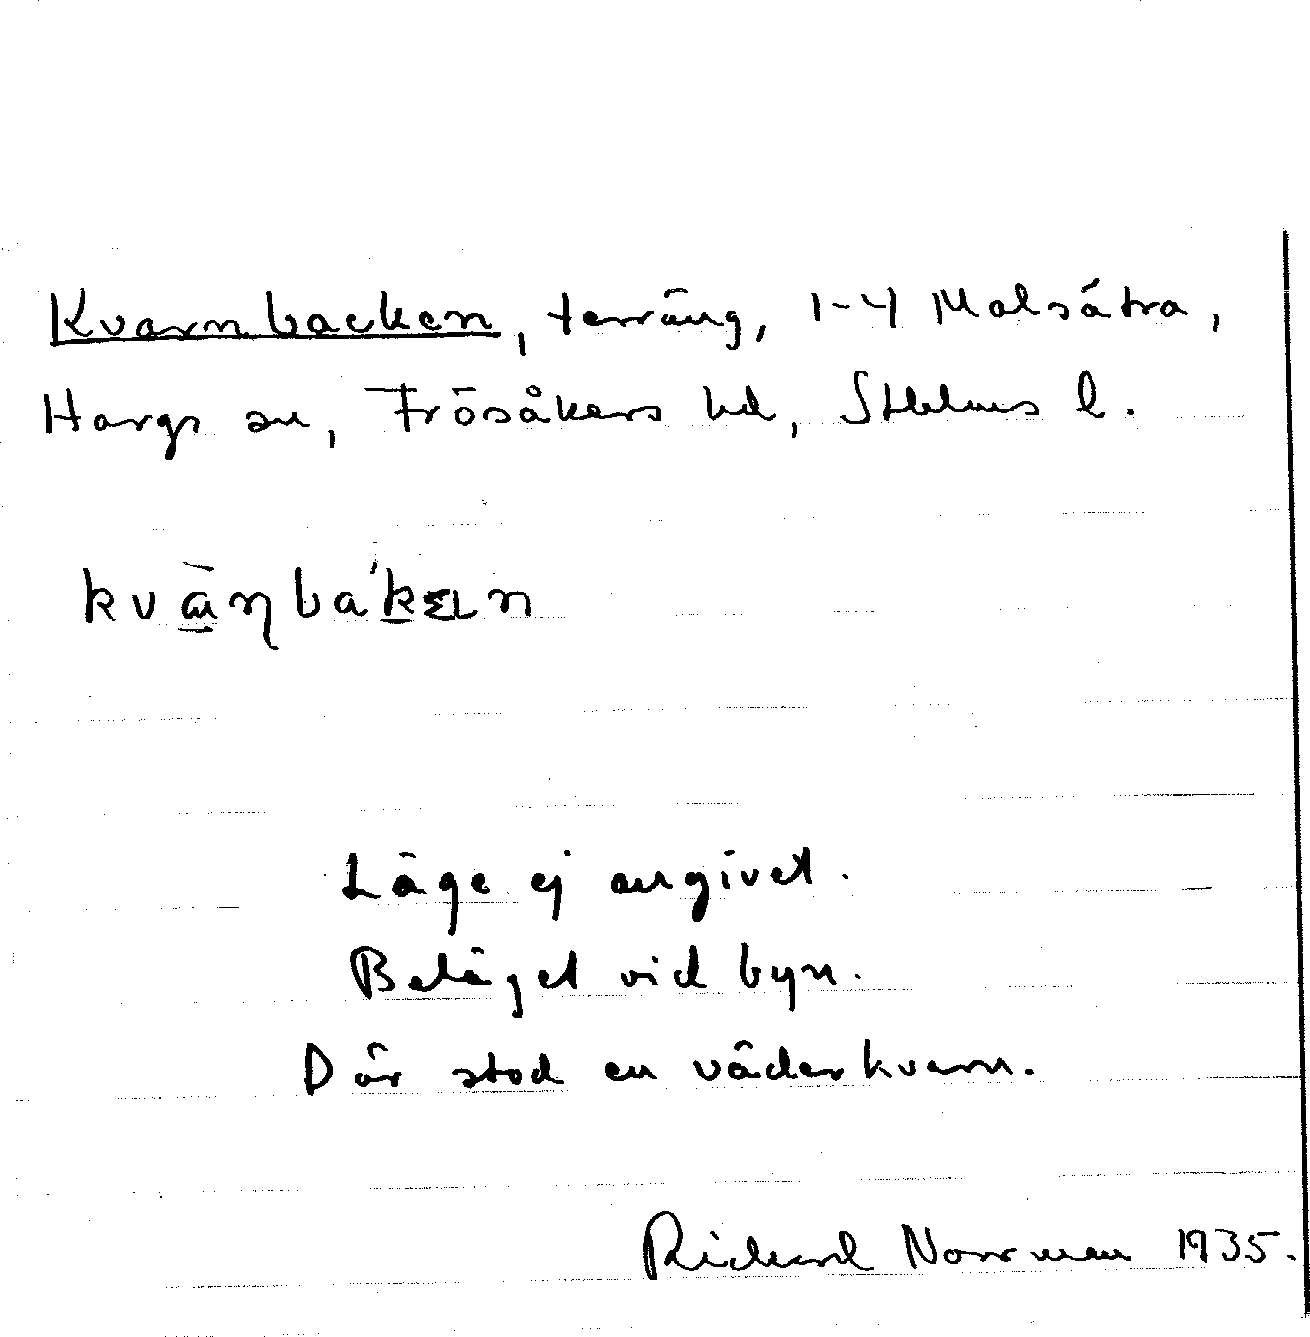 Kvarnbacken, terräng, 1-4 Malsätra,
Hargs sn, Frösåkers hd, Sthlms l.
Läge ej angivet.
Beläget vid byn.
Där stod en väderkvarn.
Rickard Norrman 1935.